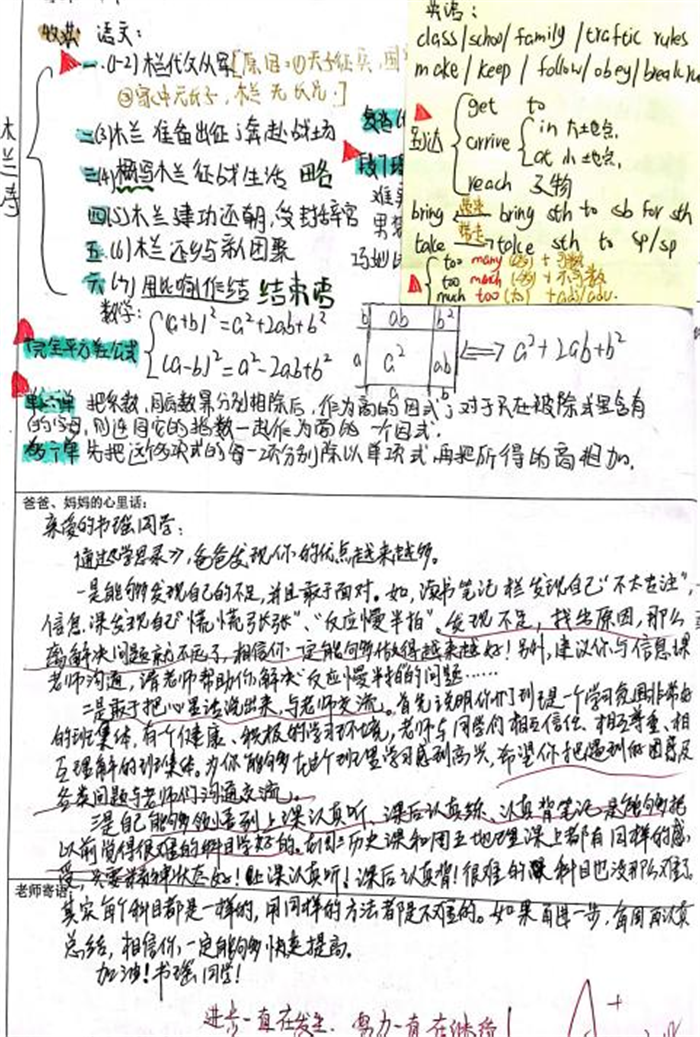 收获 语文：
木兰诗
一.(1-2)木兰代父从军[原因:①天子征兵,
②家中无长子,木兰无长兄.]
二(3)木兰准备出征,奔赴战场
三(4)概写木兰征战生活 略
四(5)木兰建功还朝,受封辞官
五.(6)木兰还乡与亲人团聚
六(7)用比喻作结 结束语
英语:
class/school/family/traffic rules
make/keep/follow/obey/break
到达
get to
arrive
in 大地点
at 小地点
reach 及物
bring bring sth to sb for sth
take take sth to sp/sp
too many + 可数
too much + 不可数
much too + adj/adv.
数学:
完全平方公式
(a+b)²=a²+2ab+b²
(a-b)²=a²-2ab+b²
b ab b²
a a² ab
a b
⟺a²+2ab+b²
单÷单 把系数,同底数幂分别相除后,作为商的因式;对于只在被除式里含有
的字母,则连同它的指数一起作为商的一个因式.
多÷单 先把这个多项式的每一项分别除以单项式,再把所得的商相加.
爸爸、妈妈的心里话:
亲爱的书瑶同学:
通过《学思录》,爸爸发现你的优点越来越多。
一是能够发现自己的不足,并且敢于面对。如,读书笔记栏发现自己“不太专注”,
信息课发现自己“慌慌张张”、“反应慢半拍”。发现不足,找出原因,那么
离解决问题就不远了,相信你一定能够做得越来越好!另外,建议你与信息课
老师沟通,请老师帮助你解决“反应慢半拍”的问题……
二是敢于把心里话说出来,与老师交流。首先说明你们班是一个学习氛围非常好
的班集体,有个健康、积极的学习环境,老师与同学们相互信任、相互尊重、相
互理解的班集体。为你能够在这个班里学习感到高兴,希望你把遇到的困难及
各类问题与老师们沟通交流。
三是自己能够做到上课认真听、课后认真练、认真背笔记是能够把
以前觉得很难的科目学好的。历史课和周五地理课上都有同样的感
受,只要状态好!上课认真听!课后认真背!很难的科目也没那么难了。
老师寄语:
其实每个科目都是一样的,用同样的方法都是不难的。如果再进一步,每周再认真
总结,相信你一定能够快速提高。
加油!书瑶同学!
进步一直在发生,努力一直在继续!
A+